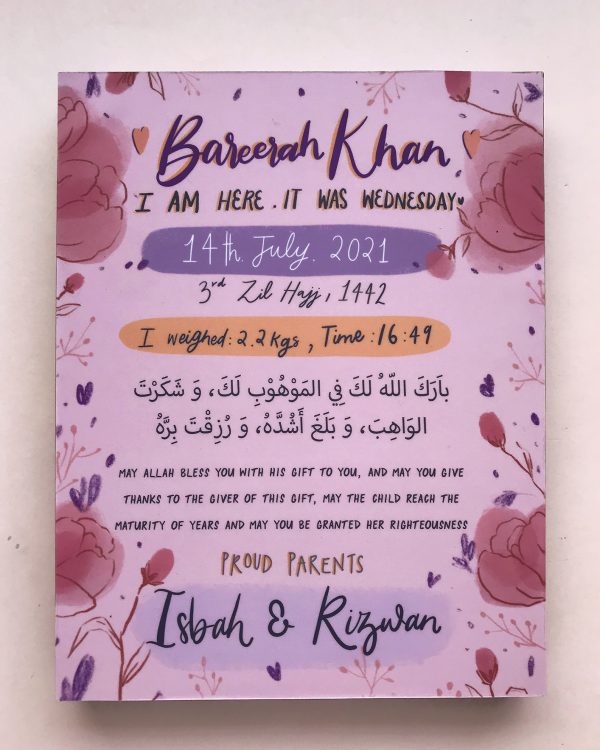 Bareerah Khan
I AM HERE. IT WAS WEDNESDAY
14th. July. 2021
3rd Zil Hajj, 1442
I weighed: 2.2kgs, Time: 16:49
باَرَكَ اللّٰهُ لَكَ فِي المَوْهُوْبِ لَكَ، وَ شَكَرْتَ
الوَاهِبَ، وَ بَلَغَ أَشُدَّهُ، وَ رُزِقْتَ بِرَّهُ
MAY ALLAH BLESS YOU WITH HIS GIFT TO YOU, AND MAY YOU GIVE
THANKS TO THE GIVER OF THIS GIFT, MAY THE CHILD REACH THE
MATURITY OF YEARS AND MAY YOU BE GRANTED HER RIGHTEOUSNESS
PROUD PARENTS
Isbah & Rizwan